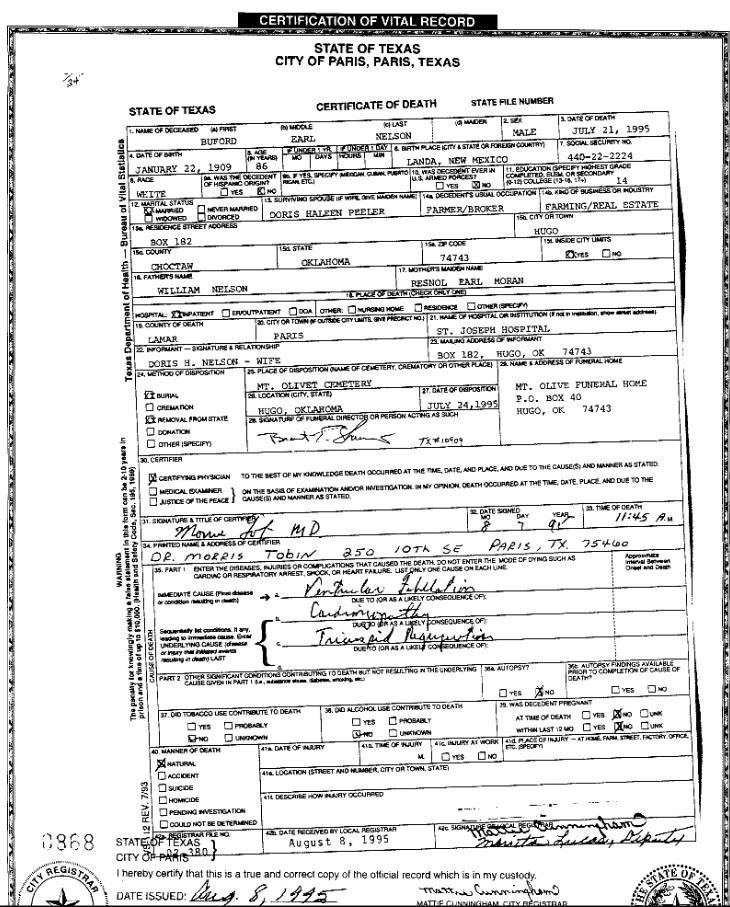 CERTIFICATION OF VITAL RECORD
STATE OF TEXAS
CITY OF PARIS, PARIS, TEXAS
STATE OF TEXAS CERTIFICATE OF DEATH STATE FILE NUMBER
1. NAME OF DECEASED (a) FIRST (b) MIDDLE (c) LAST (d) MAIDEN 2. SEX 3. DATE OF DEATH
BUFORD EARL NELSON MALE JULY 21, 1995
4. DATE OF BIRTH 5. AGE (IN YEARS) IF UNDER 1 YR. MO DAYS IF UNDER 1 DAY HOURS MIN 6. BIRTH PLACE (CITY & STATE OR FOREIGN COUNTRY) 7. SOCIAL SECURITY NO.
JANUARY 22, 1909 86 LANDA, NEW MEXICO 440-22-2224
8. RACE 9a. WAS THE DECEDENT OF HISPANIC ORIGIN? 9b. IF YES, SPECIFY (MEXICAN, CUBAN, PUERTO RICAN, ETC.) 10. WAS DECEDENT EVER IN U.S. ARMED FORCES? 11. EDUCATION (SPECIFY HIGHEST GRADE COMPLETED, ELEM. OR SECONDARY (0-12) COLLEGE (13-16, 17+)
WHITE YES NO YES NO 14
12. MARITAL STATUS 13. SURVIVING SPOUSE (IF WIFE, GIVE MAIDEN NAME) 14a. DECEDENT'S USUAL OCCUPATION 14b. KIND OF BUSINESS OR INDUSTRY
MARRIED NEVER MARRIED
WIDOWED DIVORCED DORIS HALEEN PEELER FARMER/BROKER FARMING/REAL ESTATE
15a. RESIDENCE STREET ADDRESS 15b. CITY OR TOWN
BOX 182 HUGO
15c. COUNTY 15d. STATE 15e. ZIP CODE 15f. INSIDE CITY LIMITS
CHOCTAW OKLAHOMA 74743 YES NO
16. FATHER'S NAME 17. MOTHER'S MAIDEN NAME
WILLIAM NELSON RESNOL EARL MORAN
18. PLACE OF DEATH (CHECK ONLY ONE)
HOSPITAL: INPATIENT ER/OUTPATIENT DOA OTHER: NURSING HOME RESIDENCE OTHER (SPECIFY)
19. COUNTY OF DEATH 20. CITY OR TOWN (IF OUTSIDE CITY LIMITS, GIVE PRECINCT NO.) 21. NAME OF HOSPITAL OR INSTITUTION (If not in institution, show street address)
LAMAR PARIS ST. JOSEPH HOSPITAL
22. INFORMANT — SIGNATURE & RELATIONSHIP 23. MAILING ADDRESS OF INFORMANT
DORIS H. NELSON - WIFE BOX 182, HUGO, OK 74743
24. METHOD OF DISPOSITION 25. PLACE OF DISPOSITION (NAME OF CEMETERY, CREMATORY OR OTHER PLACE) 29. NAME & ADDRESS OF FUNERAL HOME
BURIAL MT. OLIVET CEMETERY MT. OLIVE FUNERAL HOME
CREMATION 26. LOCATION (CITY, STATE) 27. DATE OF DISPOSITION P.O. BOX 40
REMOVAL FROM STATE HUGO, OKLAHOMA JULY 24, 1995 HUGO, OK 74743
DONATION 28. SIGNATURE OF FUNERAL DIRECTOR OR PERSON ACTING AS SUCH
OTHER (SPECIFY) TX#10909
30. CERTIFIER
CERTIFYING PHYSICIAN TO THE BEST OF MY KNOWLEDGE DEATH OCCURRED AT THE TIME, DATE, AND PLACE, AND DUE TO THE CAUSE(S) AND MANNER AS STATED.
MEDICAL EXAMINER
JUSTICE OF THE PEACE ON THE BASIS OF EXAMINATION AND/OR INVESTIGATION, IN MY OPINION, DEATH OCCURRED AT THE TIME, DATE, PLACE, AND DUE TO THE CAUSE(S) AND MANNER AS STATED.
31. SIGNATURE & TITLE OF CERTIFIER 32. DATE SIGNED MO DAY YEAR 33. TIME OF DEATH
MD 8 7 95 11:45 A.M
34. PRINTED NAME & ADDRESS OF CERTIFIER
DR. MORRIS TOBIN 250 10TH SE PARIS, TX. 75460
35. PART 1 ENTER THE DISEASES, INJURIES OR COMPLICATIONS THAT CAUSED THE DEATH. DO NOT ENTER THE MODE OF DYING SUCH AS CARDIAC OR RESPIRATORY ARREST, SHOCK, OR HEART FAILURE. LIST ONLY ONE CAUSE ON EACH LINE. Approximate Interval Between Onset and Death
IMMEDIATE CAUSE (Final disease or condition resulting in death) a. Ventricular Fibrillation
DUE TO (OR AS A LIKELY CONSEQUENCE OF):
Cardiomyopathy
DUE TO (OR AS A LIKELY CONSEQUENCE OF):
Sequentially list conditions, if any, leading to immediate cause. Enter UNDERLYING CAUSE (disease or injury that initiated events resulting in death) LAST c. Tricuspid Regurgitation
DUE TO (OR AS A LIKELY CONSEQUENCE OF):
PART 2 OTHER SIGNIFICANT CONDITIONS CONTRIBUTING TO DEATH BUT NOT RESULTING IN THE UNDERLYING CAUSE GIVEN IN PART 1 (i.e., substance abuse, diabetes, smoking, etc.) 36a. AUTOPSY? 36b. AUTOPSY FINDINGS AVAILABLE PRIOR TO COMPLETION OF CAUSE OF DEATH?
YES NO YES NO
37. DID TOBACCO USE CONTRIBUTE TO DEATH 38. DID ALCOHOL USE CONTRIBUTE TO DEATH 39. WAS DECEDENT PREGNANT
YES PROBABLY YES PROBABLY AT TIME OF DEATH YES NO UNK
NO UNKNOWN NO UNKNOWN WITHIN LAST 12 MO YES NO UNK
40. MANNER OF DEATH 41a. DATE OF INJURY 41b. TIME OF INJURY 41c. INJURY AT WORK 41d. PLACE OF INJURY — AT HOME, FARM, STREET, FACTORY, OFFICE, ETC. (SPECIFY)
NATURAL M. YES NO
ACCIDENT 41e. LOCATION (STREET AND NUMBER, CITY OR TOWN, STATE)
SUICIDE
HOMICIDE 41f. DESCRIBE HOW INJURY OCCURRED
PENDING INVESTIGATION
COULD NOT BE DETERMINED
42a. REGISTRAR FILE NO. 42b. DATE RECEIVED BY LOCAL REGISTRAR 42c. SIGNATURE OF LOCAL REGISTRAR
02-380 August 8, 1995 Mattie Cunningham
Deputy
0868 STATE OF TEXAS
CITY OF PARIS
I hereby certify that this is a true and correct copy of the official record which is in my custody.
DATE ISSUED: Aug. 8, 1995 Mattie Cunningham
MATTIE CUNNINGHAM, CITY REGISTRAR
CITY REGISTRAR
THE STATE OF TEXAS
Texas Department of Health — Bureau of Vital Statistics
WARNING
The penalty for knowingly making a false statement in this form can be 2-10 years in prison and a fine of up to $10,000. (Health and Safety Code, Sec. 195, 1989)
CAUSE OF DEATH
12 REV. 7/93